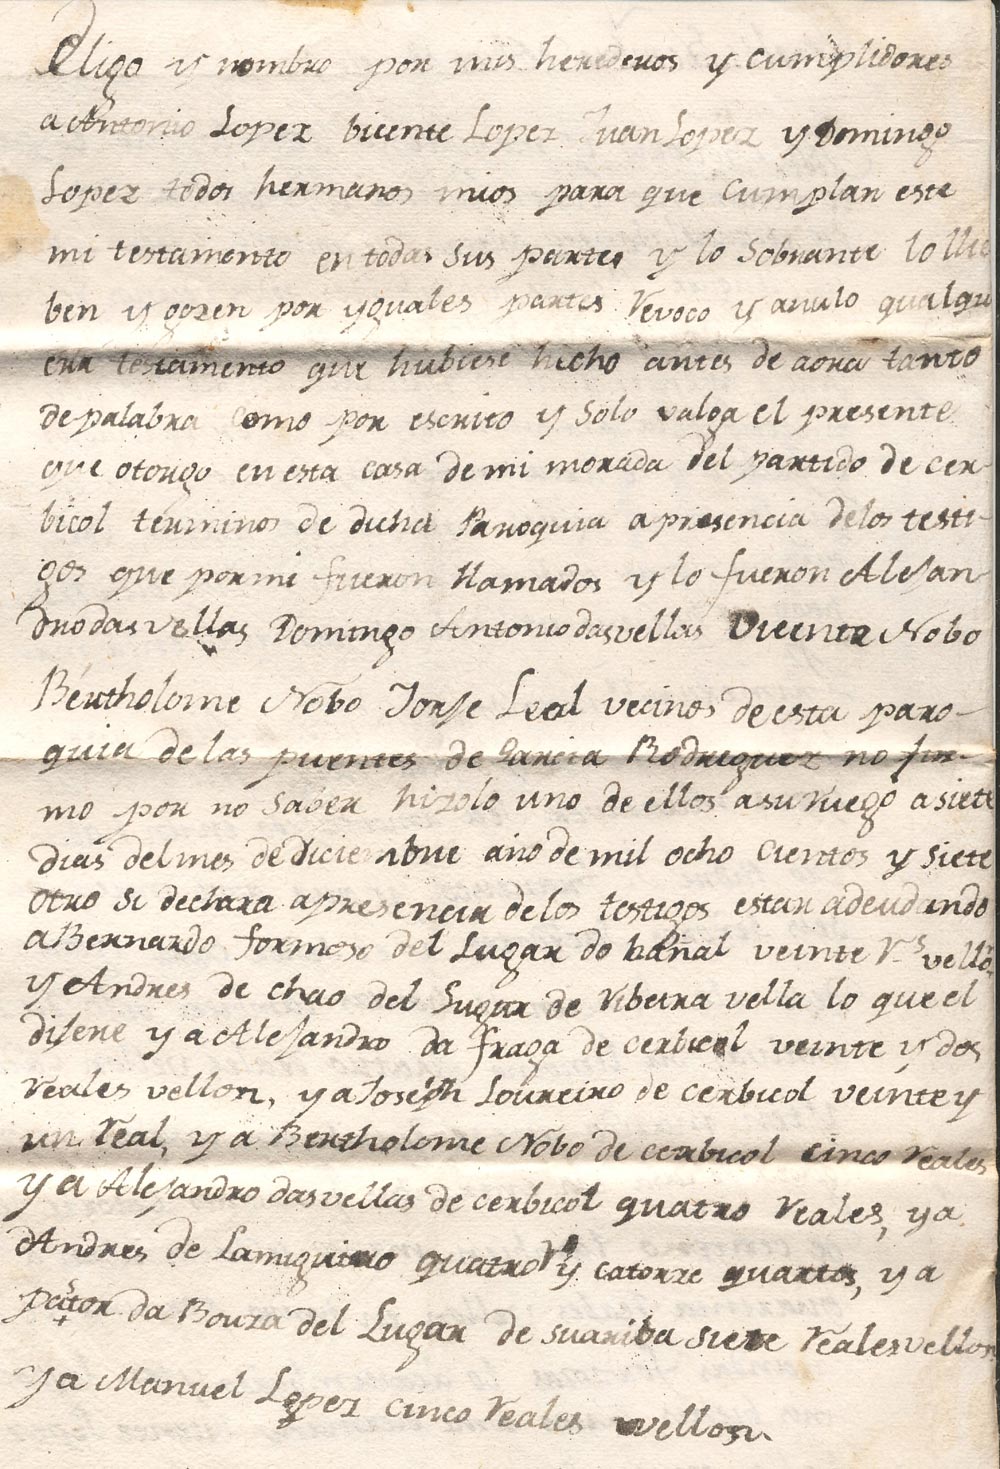 Eligo y nombro por mis herederos y cumplidores
a Antonio Lopez bicente Lopez Juan Lopez y Domingo
Lopez todos hermanos mios para que cumplan este
mi testamento en todas sus partes y lo sobrante lo lle
ben y gozen por yguales partes revoco y anulo qualqui
era testamento que hubiese hecho antes de aora tanto
de palabra como por escrito y solo valga el presente
que otorgo en esta casa de mi morada del partido de cer-
bicol terminos de dicha Parroquia a presencia de los testi-
gos que por mi fueron llamados y lo fueron Alejan-
dro dasvellas Domingo Antonio dasvellas Vicente Nobo
Bertholome Nobo Jorje Leal vecinos de esta paro-
quia de las puentes de Garcia Rodriguez no fir-
mo por no saber hizolo uno de ellos a su ruego a siete
dias del mes de Diciembre año de mil ocho cientos y siete
otro si declara a presencia de los testigos estar adeudando
a Bernardo formoso del Lugar do banal veinte r.s vello.
y Andres de chao del Lugar de ribeira vella lo que el
dijere y a Alejandro da fraga de cerbicol veinte y dos
reales vellon, y a Joseph Loureiro de cerbicol veinte y
un real, y a Bertholome Nobo de cerbicol cinco reales
y a Alejandro dasvellas de cerbicol quatro reales, y a
Andres de Lamigueiro quatro r.s y catorze quartos, y a
da Bouza del Lugar de suariba siete reales vellon
y a Manuel Lopez cinco reales vellon.